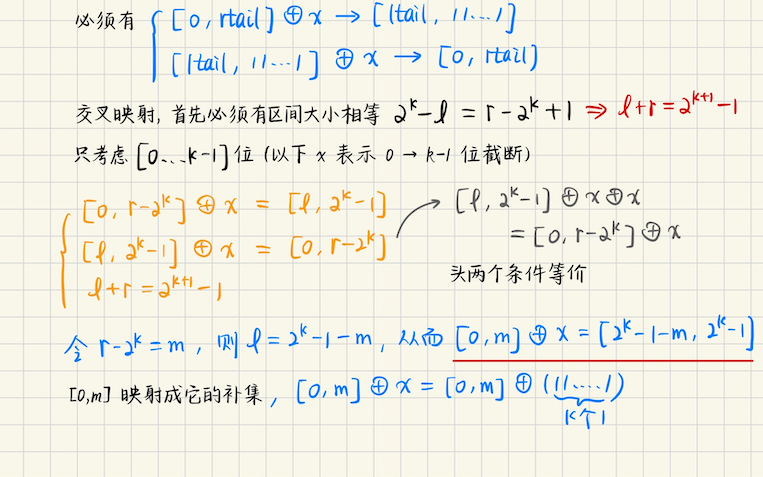 必须有 { [0, rtail] ⊕ x → [ltail, 11...1]
[ltail, 11...1] ⊕ x → [0, rtail]
交叉映射, 首先必须有区间大小相等 2^k - l = r - 2^k + 1 ⇒ l + r = 2^{k+1} - 1
只考虑 [0...k-1] 位 (以下 x 表示 0 → k-1 位截断)
{ [0, r-2^k] ⊕ x = [l, 2^k-1]
[l, 2^k-1] ⊕ x = [0, r-2^k]
l + r = 2^{k+1} - 1
[l, 2^k-1] ⊕ x ⊕ x
= [0, r-2^k] ⊕ x
头两个条件等价
令 r-2^k = m, 则 l = 2^k-1-m, 从而 [0, m] ⊕ x = [2^k-1-m, 2^k-1]
[0,m] 映射成它的补集, [0, m] ⊕ x = [0, m] ⊕ (11....1)
k个1